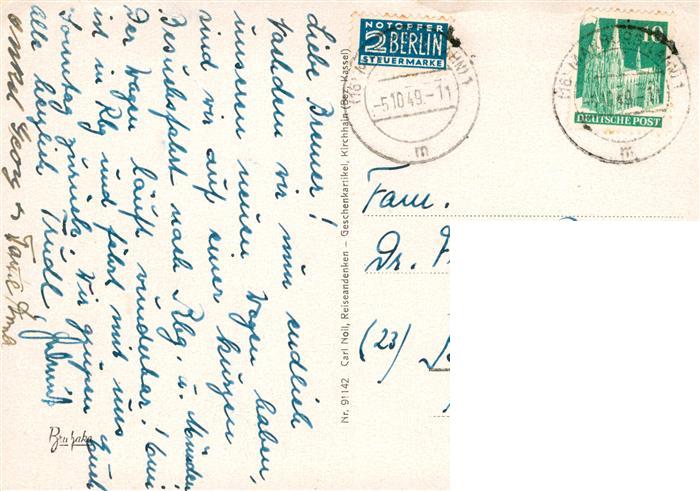 Liebe Brimer!
Nachdem wir nun endlich
unseren neuen Wagen haben,
sind wir auf einer kurzen
Besuchsfahrt nach Rbg. u. Münden
Der Wagen läuft wunderbar!
ist i. Rbg und fährt mit uns
Sonntag zurück. Wir grüßen Euch
alle herzlich Trudl,
Onkel Georg u. Tante
Bruhaka
Nr. 91142 Carl Noll, Reiseandenken – Geschenkartikel, Kirchhain (Bez. Kassel)
NOTOPFER
2 BERLIN
STEUERMARKE
-5.10.49.-11
m
10
DEUTSCHE POST
49.-11
m
Fam.
Dr.
(23)